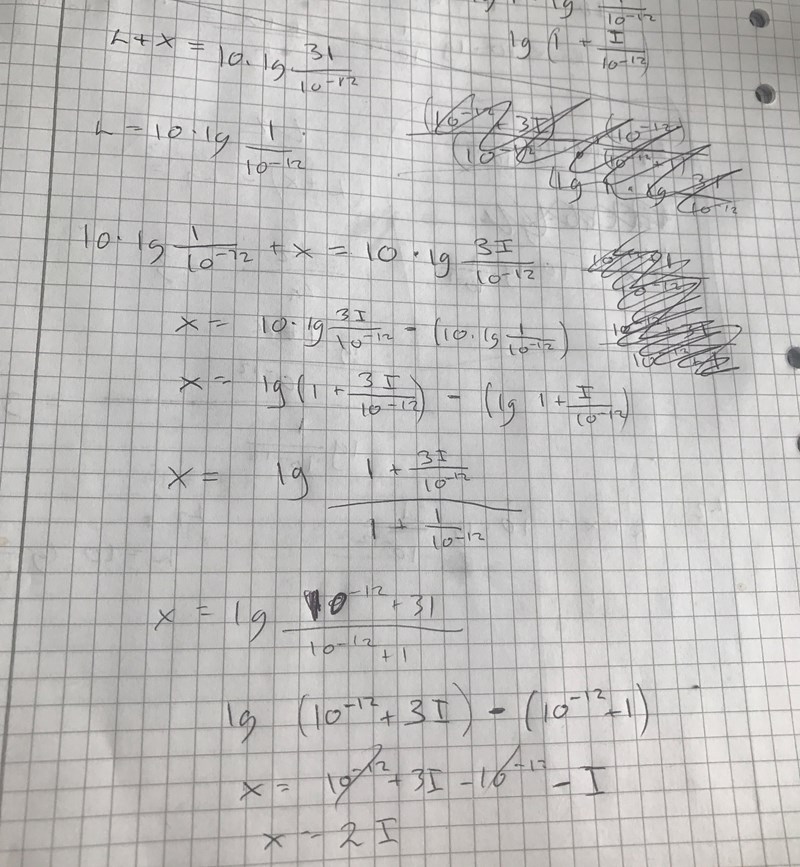 L + x = 10 · lg 3I / 10^-12
lg (1 + I / 10^-12)
L = 10 · lg 1 / 10^-12
10 · lg 1 / 10^-12 + x = 10 · lg 3I / 10^-12
x = 10 · lg 3I / 10^-12 - (10 · lg 1 / 10^-12)
x = lg (1 + 3I / 10^-12) - (lg 1 + I / 10^-12)
x = lg 1 + 3I / 10^-12 / 1 + 1 / 10^-12
x = lg 10^-12 + 3I / 10^-12 + 1
lg (10^-12 + 3I) - (10^-12 + 1)
x = 10^-12 + 3I - 10^-12 - I
x = 2I